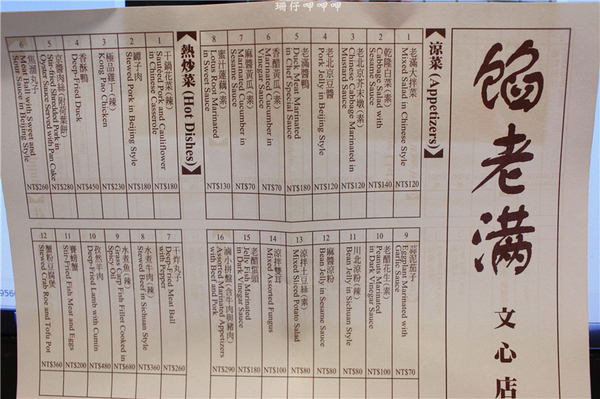 珊仔呷呷呷
餡老滿
文心店
【涼菜 (Appetizers)】
1
老滿大拌菜
Mixed Salad in Chinese Style
NT$120
2
乾隆白菜(素)
Cabbage Salad with
Sesame Sauce
NT$140
3
老北京芥末墩(素)
Chinese Cabbage Marinated in
Mustard Sauce
NT$120
4
老北京豆醬
Pork Jelly in Beijing Style
NT$120
5
老滿醬鴨
Duck Meat Marinated
in Chef Special Sauce
NT$180
6
香醋黃瓜(素)
Marinated Cucumber in
Vinegar Sauce
NT$70
7
麻醬黃瓜(素)
Marinated Cucumber in
Sesame Sauce
NT$70
8
蜜汁蓮藕(素)
Lotus Root Marinated
in Sweet Sauce
NT$130
9
蒜泥茄子
Eggplant Marinated with
Garlic Sauce
NT$70
10
老醋花生(素)
Peanut Marinated
in Dark Vinegar Sauce
NT$100
11
川北涼粉(辣)
Bean Jelly in Sichuan Style
NT$80
12
麻醬涼粉
Bean Jelly in Sesame Sauce
NT$80
13
涼拌土豆絲(素)
Mixed Sliced Potato Salad
NT$80
14
涼拌雙耳
Mixed Assorted Fungus
NT$100
15
老醋蜇頭
Jelly Fish Marinated
in Dark Vinegar Sauce
NT$180
16
滷小拼盤(含牛肉與豬肉)
Assorted Marinated Appetizers
with Beef and Pork
NT$290
【熱炒菜 (Hot Dishes)】
1
干鍋花菜(辣)
Sauteed Pork and Cauliflower
in Chinese Casserole
NT$180
2
罈子肉
Stewed Pork in Beijing Style
NT$180
3
極品雞丁(辣)
Kong Pao Chicken
NT$230
4
香酥鴨
Deep-Fried Duck
NT$450
5
京醬肉絲(附荷葉餅)
Stir-fried Shredded Pork in
Oyster Sauce Served with Pan Cake
NT$280
6
焦溜丸子
Meat Ball with Sweet and
Sour Sauce in Beijing Style
NT$260
7
干炸丸子
Deep-Fried Meat Ball
with Pepper
NT$260
8
水煮牛肉(辣)
Stewed Beef in Sichuan Style
NT$360
9
水煮魚(辣)
Grass Carp Fish Fillet Cooked in
Spicy Oil
NT$680
10
孜然羊肉
Deep-Fried Lamb with Cumin
NT$480
11
賽螃蟹
Stir-Fried Fish Meat and Eggs
NT$200
12
蟹粉豆腐煲
Stewed Crab Roe and Tofu Pot
NT$360